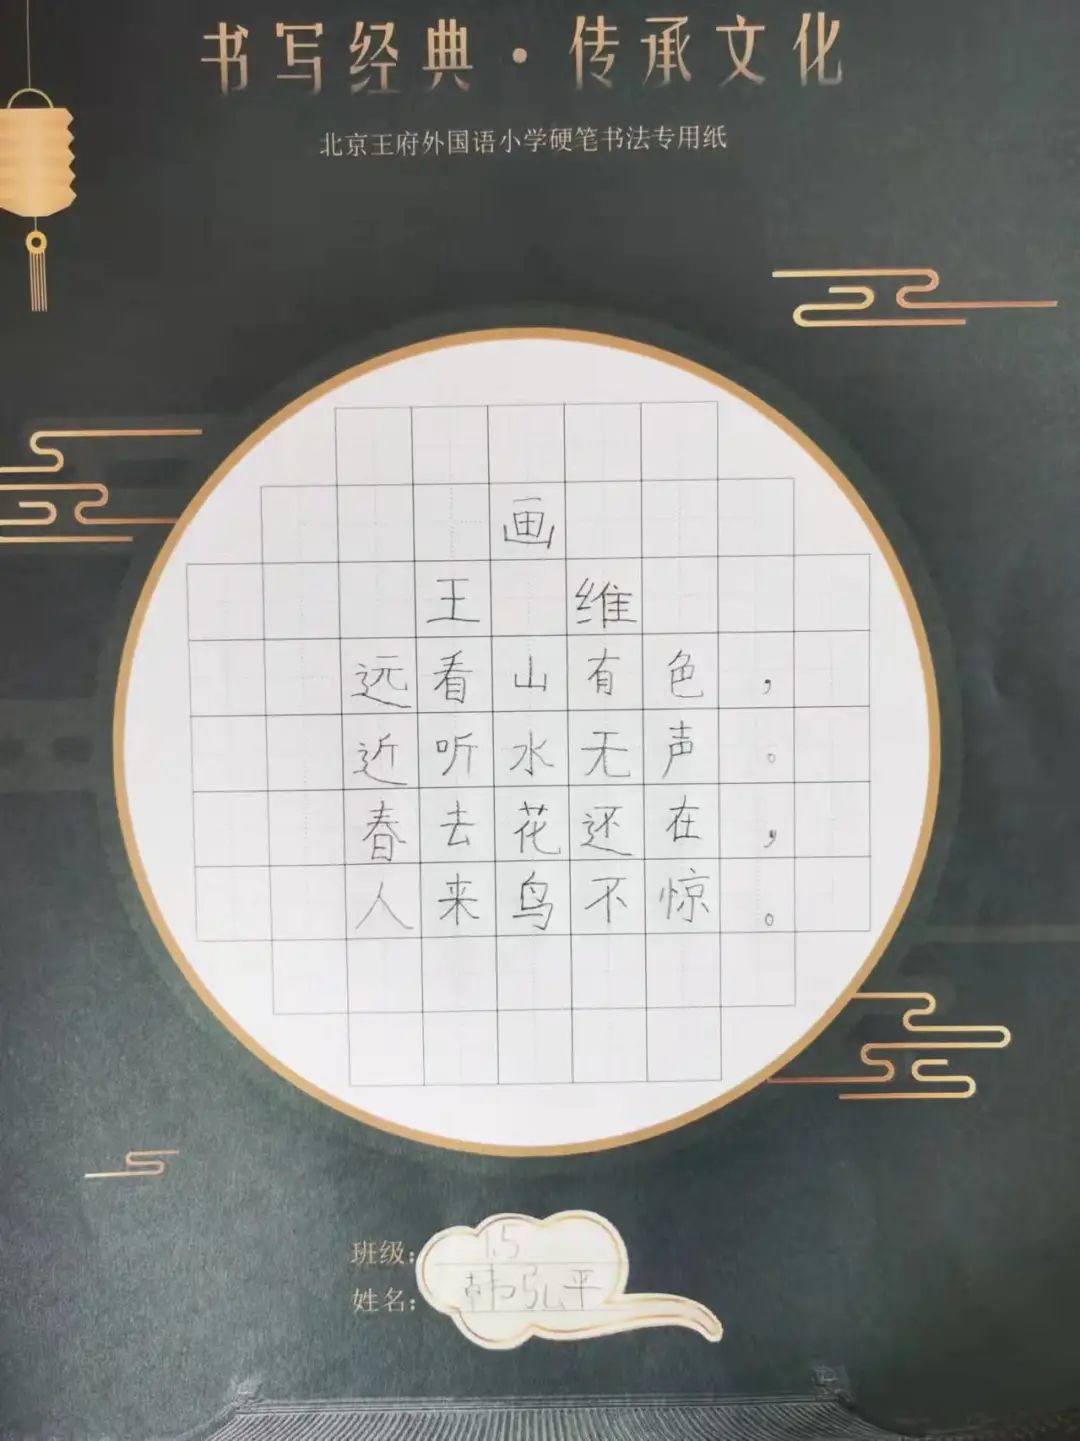 书写经典·传承文化
北京王府外国语小学硬笔书法专用纸
画
王 维
远看山有色，
近听水无声。
春去花还在，
人来鸟不惊。
班级：1.5
姓名：韩弘平